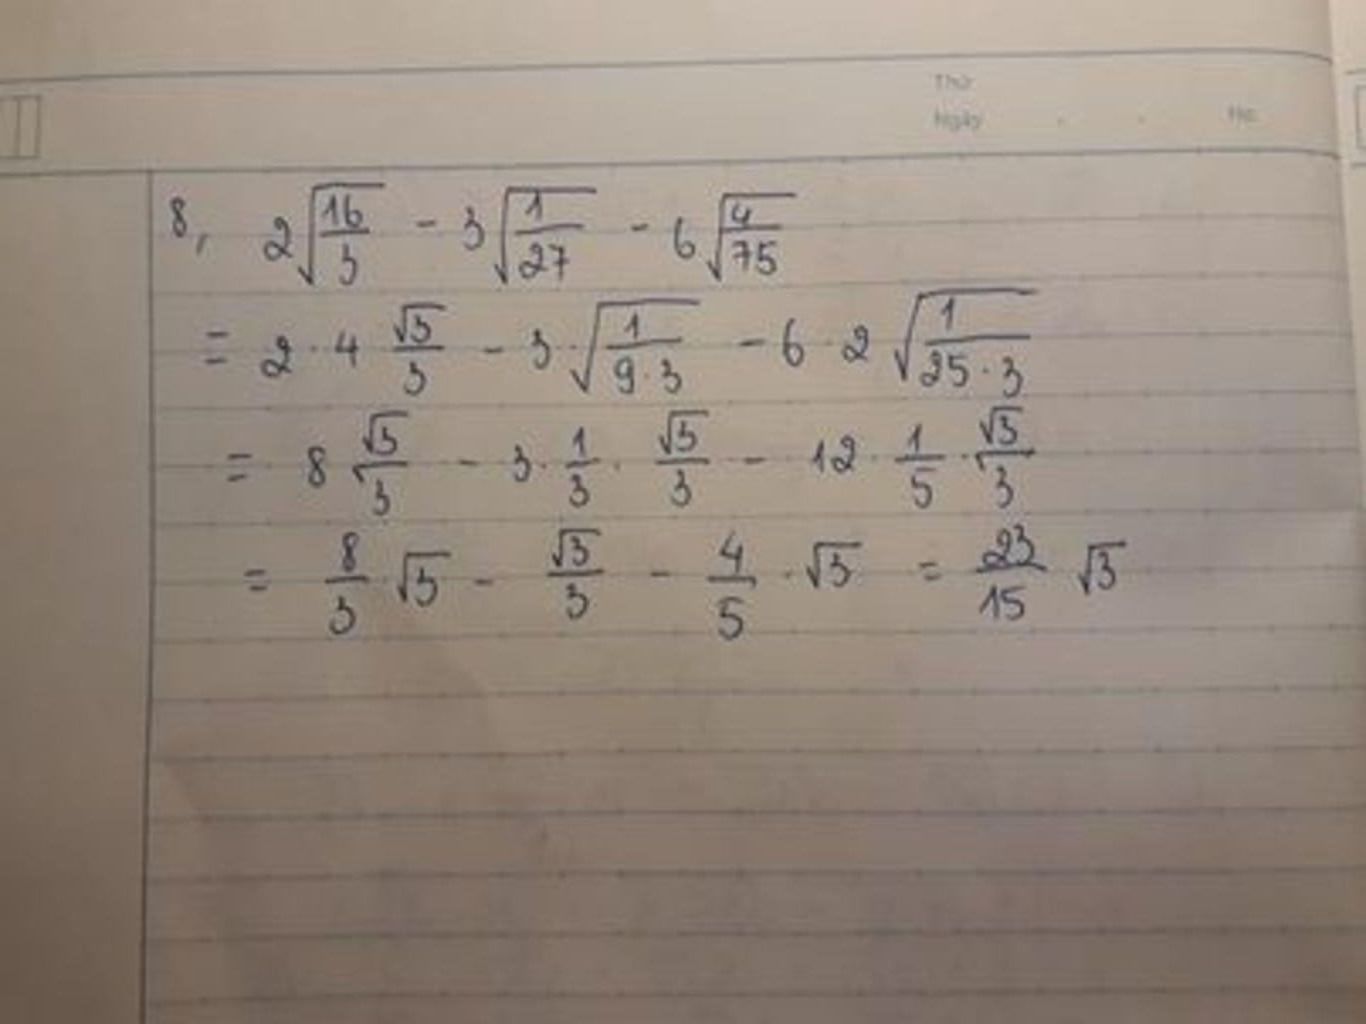 Thứ
Ngày . . No.
8, 2√(16/3) - 3√(1/27) - 6√(4/75)
= 2 · 4 √3/3 - 3 · √(1/(9·3)) - 6 · 2 √(1/(25·3))
= 8 √3/3 - 3 · 1/3 · √3/3 - 12 · 1/5 · √3/3
= 8/3 · √3 - √3/3 - 4/5 · √3 = 23/15 √3